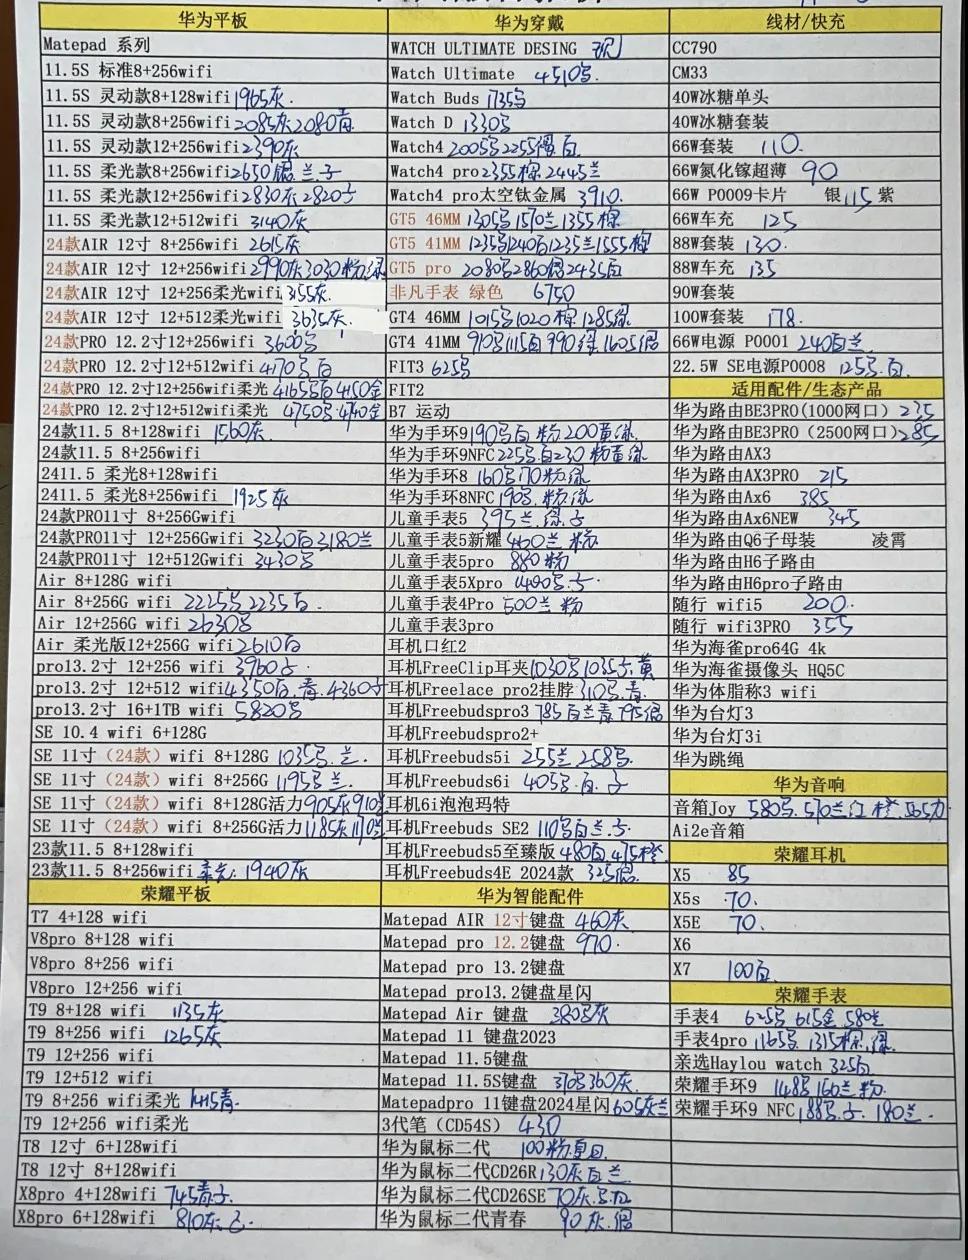 华为平板
Matepad 系列
11.5S 标准8+256wifi
11.5S 灵动款8+128wifi 1965灰.
11.5S 灵动款8+256wifi 2085灰2080青
11.5S 灵动款12+256wifi 2390灰
11.5S 柔光款8+256wifi 2650 兰 子
11.5S 柔光款12+256wifi 2830灰2820子
11.5S 柔光款12+512wifi 3140灰
24款AIR 12寸 8+256wifi 2615灰
24款AIR 12寸 12+256wifi 2990灰3030粉绿
24款AIR 12寸 12+256柔光wifi 3155灰.
24款AIR 12寸 12+512柔光wifi 3635灰.
24款PRO 12.2寸12+256wifi 3600
24款PRO 12.2寸12+512wifi 4170 白
24款PRO 12.2寸12+256柔光 4165 白4150金
24款PRO 12.2寸12+512柔光 4750 4740金
24款11.5 8+128wifi 1560灰.
24款11.5 8+256wifi
2411.5 柔光8+128wifi
2411.5 柔光8+256wifi 1925灰
24款PRO11寸 8+256Gwifi
24款PRO11寸 12+256Gwifi 3230白3180兰
24款PRO11寸 12+512Gwifi 3430
Air 8+128G wifi
Air 8+256G wifi 2225 2235白.
Air 12+256G wifi 2630
Air 柔光版12+256G wifi 2610白
pro13.2寸 12+256 wifi 3960子.
pro13.2寸 12+512 wifi 4350白.青.4360子
pro13.2寸 16+1TB wifi 5820
SE 10.4 wifi 6+128G
SE 11寸（24款）wifi 8+128G 1035 .兰.
SE 11寸（24款）wifi 8+256G 1195 兰.
SE 11寸（24款）wifi 8+128G活力 905灰910
SE 11寸（24款）wifi 8+256G活力 1185灰1170
23款11.5 8+128wifi
23款11.5 8+256wifi 柔光. 1940灰
荣耀平板
T7 4+128 wifi
V8pro 8+128 wifi
V8pro 8+256 wifi
V8pro 12+256 wifi
T9 8+128 wifi 1135灰
T9 8+256 wifi 1265灰
T9 12+256 wifi
T9 12+512 wifi
T9 8+256 wifi柔光 1415青.
T9 12+256 wifi柔光
T8 12寸 6+128wifi
T8 12寸 8+128wifi
X8pro 4+128wifi 745青子.
X8pro 6+128wifi 810灰.
华为穿戴
WATCH ULTIMATE DESING 现
Watch Ultimate 4510 .
Watch Buds 1735
Watch D 1330
Watch4 2005 2255 白.
Watch4 pro 2355棕 2445兰
Watch4 pro太空钛金属 3910.
GT5 46MM 1305 1570兰 1355棕
GT5 41MM 1235 1240白1235兰1555棕
GT5 pro 2080 2860 2435白
非凡手表 绿色 6750
GT4 46MM 1015 1020 棕 1285绿
GT4 41MM 910 1115白 990绿 1605
FIT3 625
FIT2
B7 运动
华为手环9 190 白 粉 200黄绿.
华为手环9NFC 225 白230 粉黄绿
华为手环8 160 170粉绿
华为手环8NFC 190 .粉.绿
儿童手表5 395兰.绿.子
儿童手表5新耀 460兰 粉
儿童手表5pro 880粉
儿童手表5Xpro 1490 .子.
儿童手表4Pro 500兰 粉
儿童手表3pro
耳机口红2
耳机FreeClip耳夹 1030 1035子.黄
耳机Freelace pro2挂脖 310 .青.
耳机Freebudspro3 785白兰青 795
耳机Freebudspro2+
耳机Freebuds5i 255兰 258
耳机Freebuds6i 405 .白.子
耳机6i泡泡玛特
耳机Freebuds SE2 110 白兰.子.
耳机Freebuds5至臻版 480白.475橙.
耳机Freebuds4E 2024款 325
华为智能配件
Matepad AIR 12寸键盘 460灰
Matepad pro 12.2键盘 970.
Matepad pro 13.2键盘
Matepad pro13.2键盘星闪
Matepad Air 键盘 380 灰
Matepad 11 键盘2023
Matepad 11.5键盘
Matepad 11.5S键盘 370 360灰.
Matepadpro 11键盘2024星闪 605灰兰
3代笔（CD54S） 430
华为鼠标二代 100粉
华为鼠标二代CD26R 130灰白兰
华为鼠标二代CD26SE 70灰.
华为鼠标二代青春 90灰.
线材/快充
CC790
CM33
40W冰糖单头
40W冰糖套装
66W套装 110.
66W氮化镓超薄 90
66W P0009卡片 银 115 紫
66W车充 125
88W套装 130.
88W车充 135
90W套装
100W套装 178.
66W电源 P0001 240白兰.
22.5W SE电源P0008 125 白.
适用配件/生态产品
华为路由BE3PRO(1000网口) 235
华为路由BE3PRO（2500网口） 285
华为路由AX3
华为路由AX3PRO 215
华为路由Ax6 385
华为路由Ax6NEW 345
华为路由Q6子母装 凌霄
华为路由H6子路由
华为路由H6pro子路由
随行 wifi5 200.
随行 wifi3PRO 355
华为海雀pro64G 4k
华为海雀摄像头 HQ5C
华为体脂称3 wifi
华为台灯3
华为台灯3i
华为跳绳
华为音响
音箱Joy 580 .570兰江 橙.565
Ai2e音箱
荣耀耳机
X5 85
X5s 70.
X5E 70.
X6
X7 100白
荣耀手表
手表4 625 615金 580
手表4pro 1165 1315棕.绿.
亲选Haylou watch 325白
荣耀手环9 148 160兰.粉.
荣耀手环9 NFC 188 .子. 180兰.